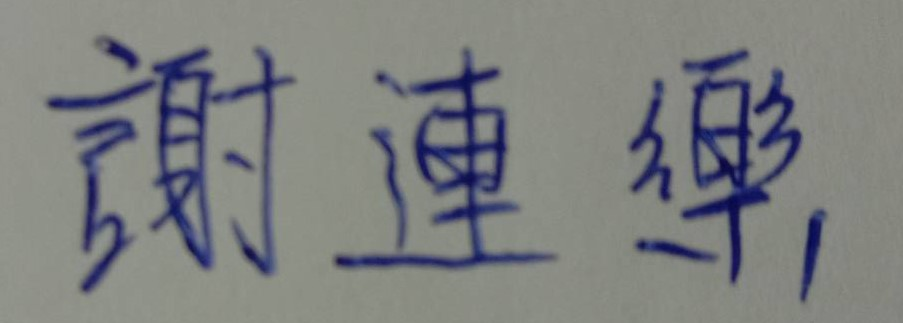 謝連樂